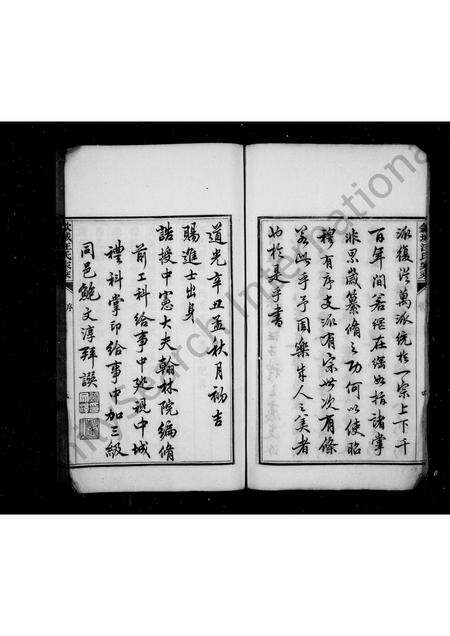 派復從萬派統於一宗上下千
百年間若網在綱如指諸掌
非累歲纂脩之功何以使昭
穆有序支派有宗世次有條
若此乎予固樂成人之美者
也於是乎書
道光辛丑孟秋月初吉
賜進士出身
誥授中憲大夫翰林院編脩
前工科給事中巡視中城
禮科掌印給事中加三級
同邑鮑文淳拜譔
序
Search International